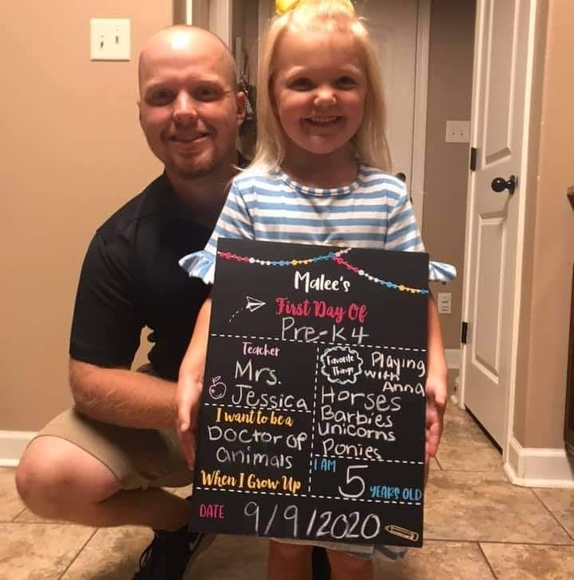 Malee's
First Day Of
Pre-K4
Teacher
Mrs.
Jessica
I want to be a
Doctor of
animals
When I Grow Up
Favorite
Things
Playing
with
Anna
Horses
Barbies
unicorns
Ponies
I AM
5 YEARS OLD
DATE 9/9/2020